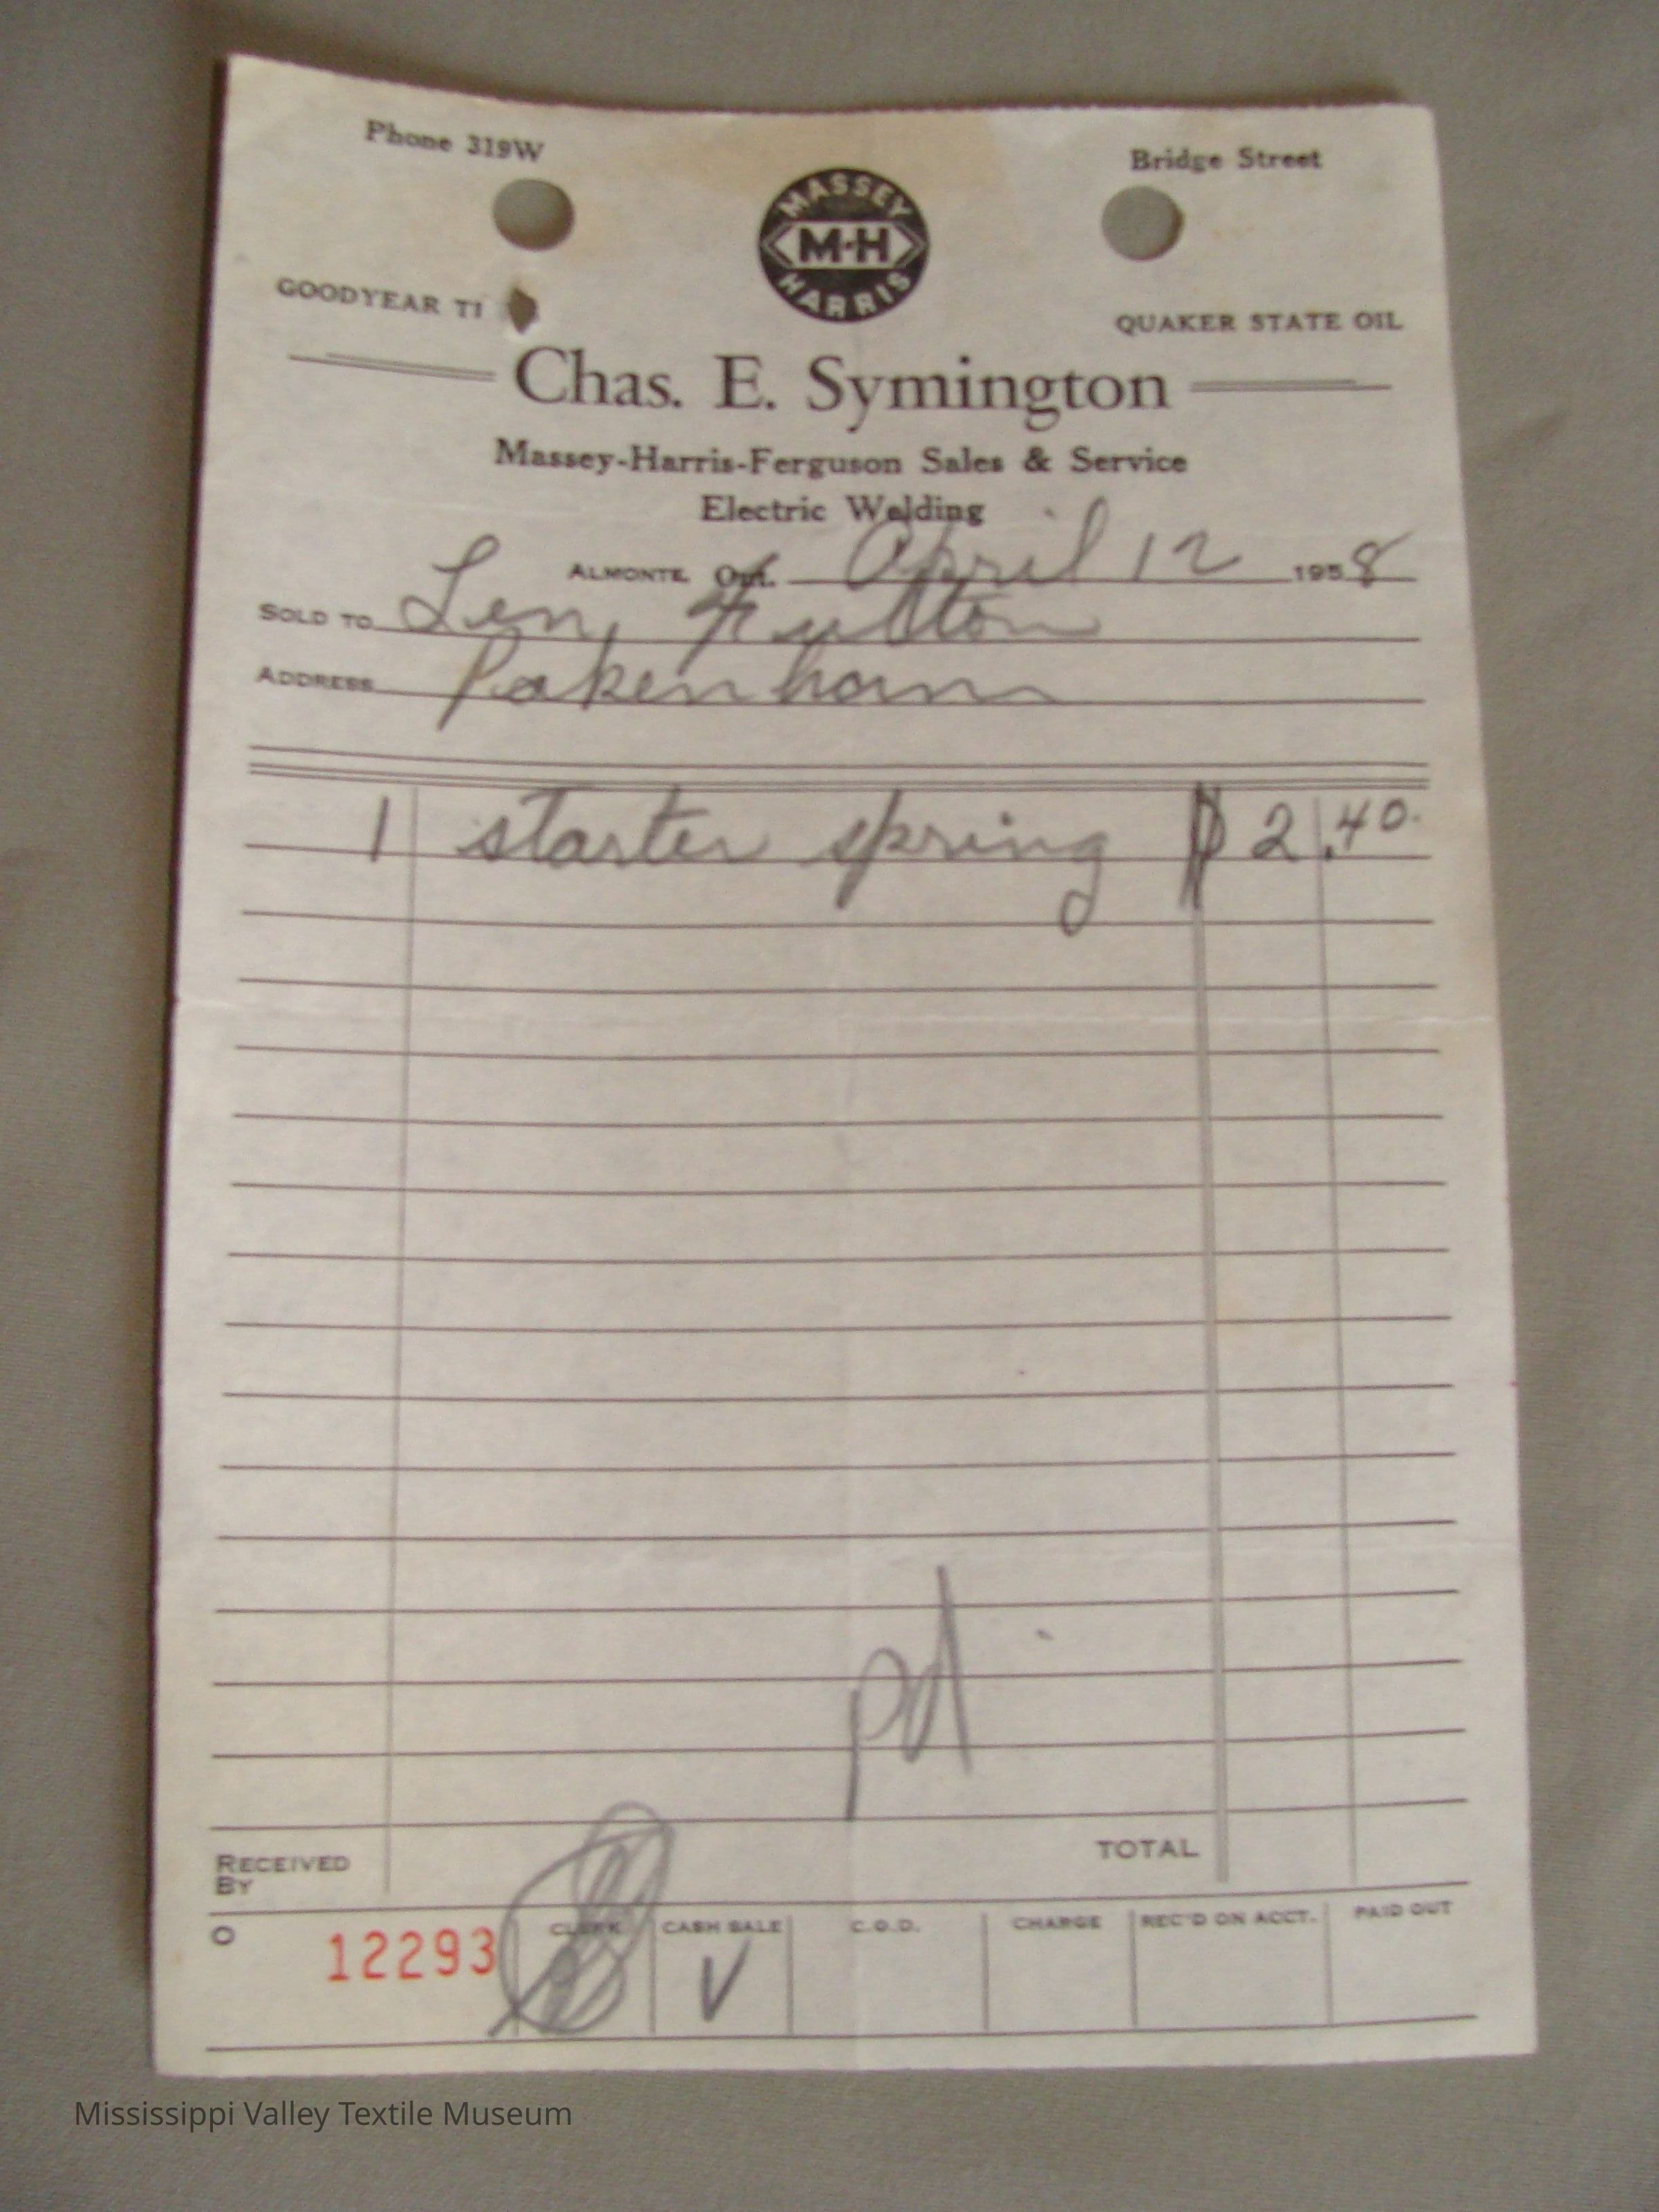 Phone 319W
Bridge Street
MASSEY
M-H
HARRIS
GOODYEAR TI
QUAKER STATE OIL
Chas. E. Symington
Massey-Harris-Ferguson Sales & Service
Electric Welding
ALMONTE, Ont. April 12 1958
SOLD TO Len, Fulton
ADDRESS Pakenham
1 starter spring $ 2.40
pd
RECEIVED BY
TOTAL
O 12293 CLERK CASH SALE C.O.D. CHARGE REC'D ON ACCT. PAID OUT
V
Mississippi Valley Textile Museum